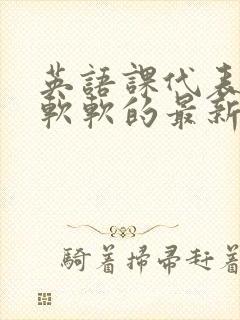 英語課代表
軟軟的最新
騎着掃帚赶着